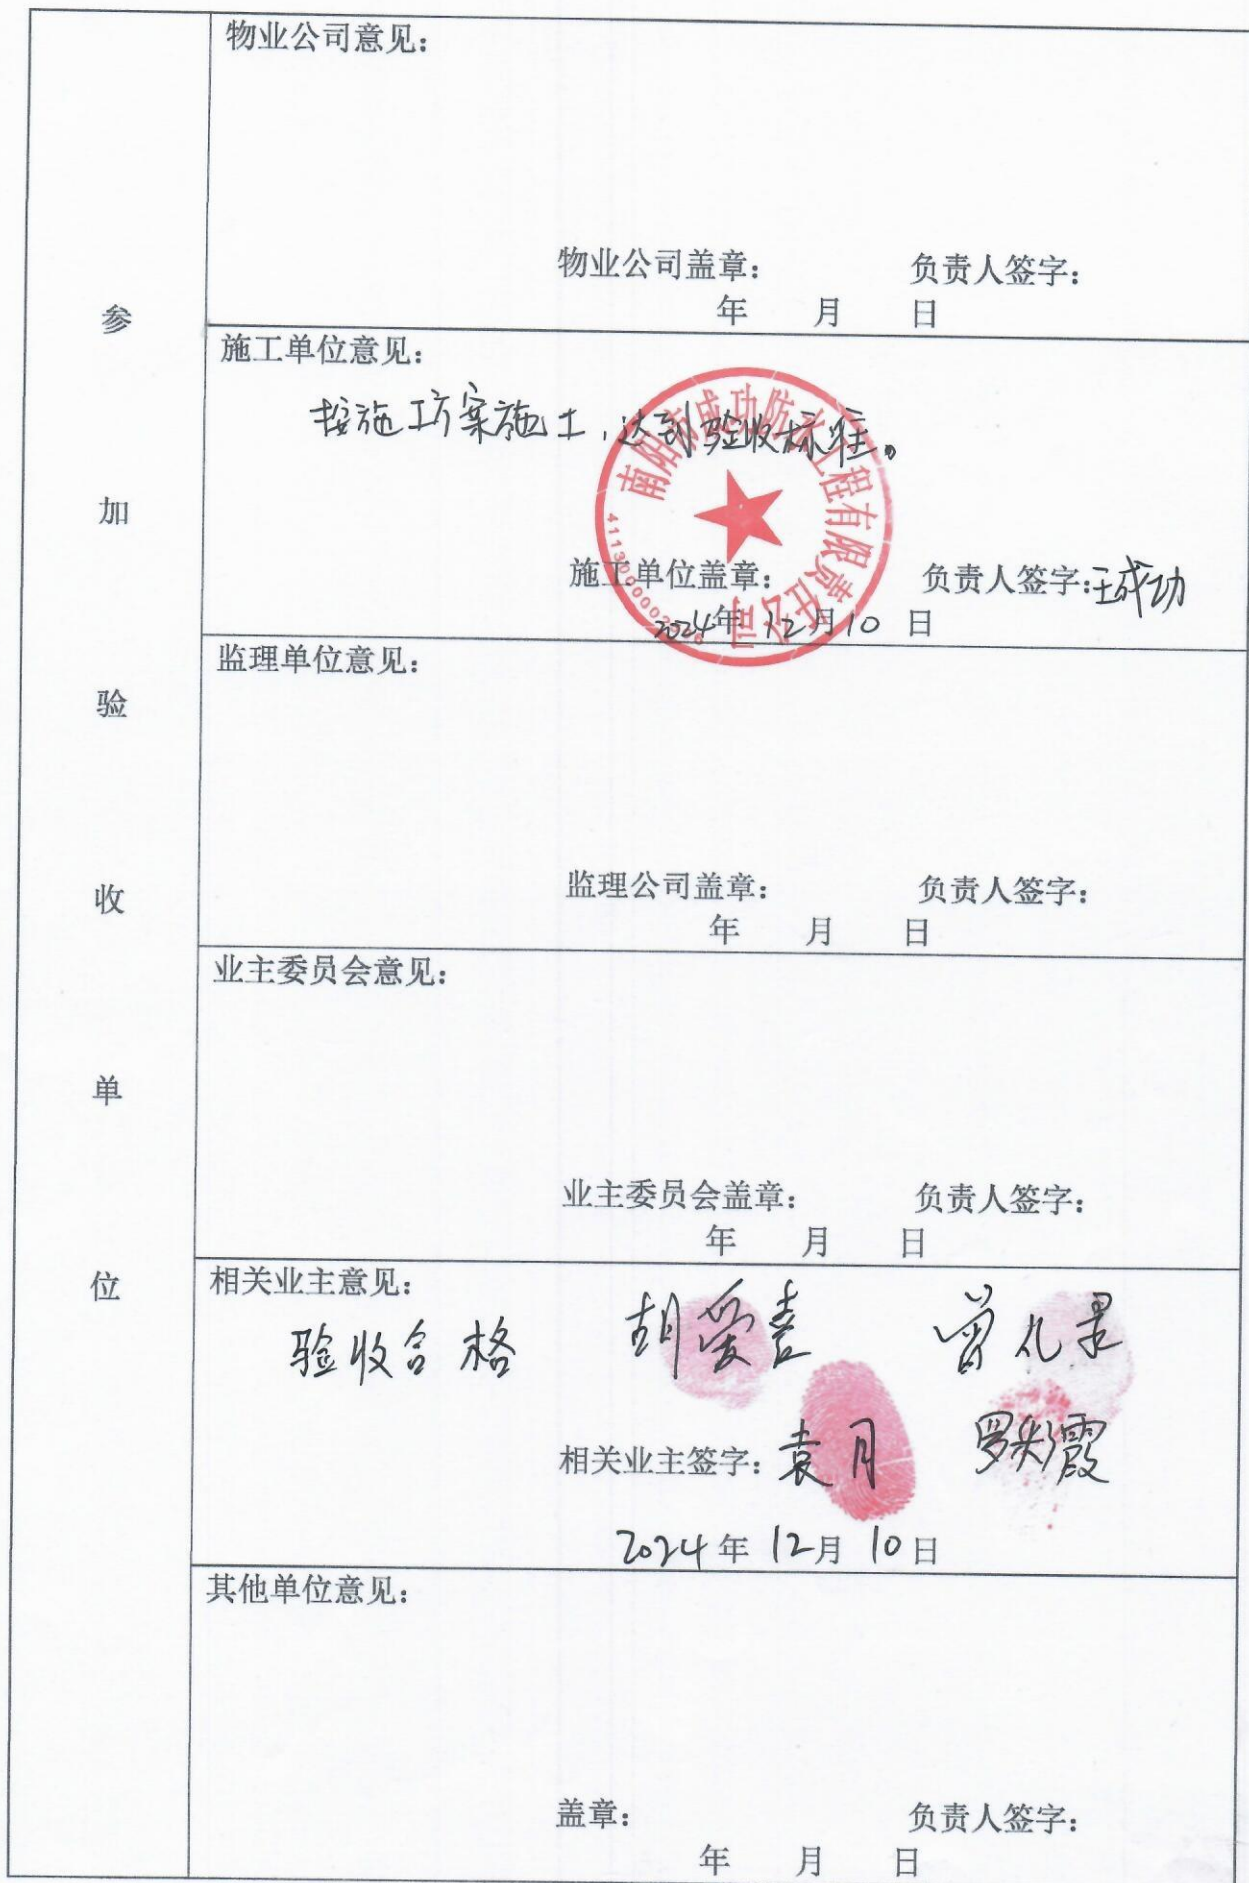 参加验收单位
物业公司意见：
物业公司盖章： 负责人签字：
年 月 日
施工单位意见：
按施工方案施工，达到验收标准。
南阳市成功防水工程有限责任公司
施工单位盖章： 负责人签字：王成功
2024年 12月10 日
监理单位意见：
监理公司盖章： 负责人签字：
年 月 日
业主委员会意见：
业主委员会盖章： 负责人签字：
年 月 日
相关业主意见：
验收合格 胡爱 曾
相关业主签字：袁月 罗彩霞
2024年 12月 10日
其他单位意见：
盖章： 负责人签字：
年 月 日